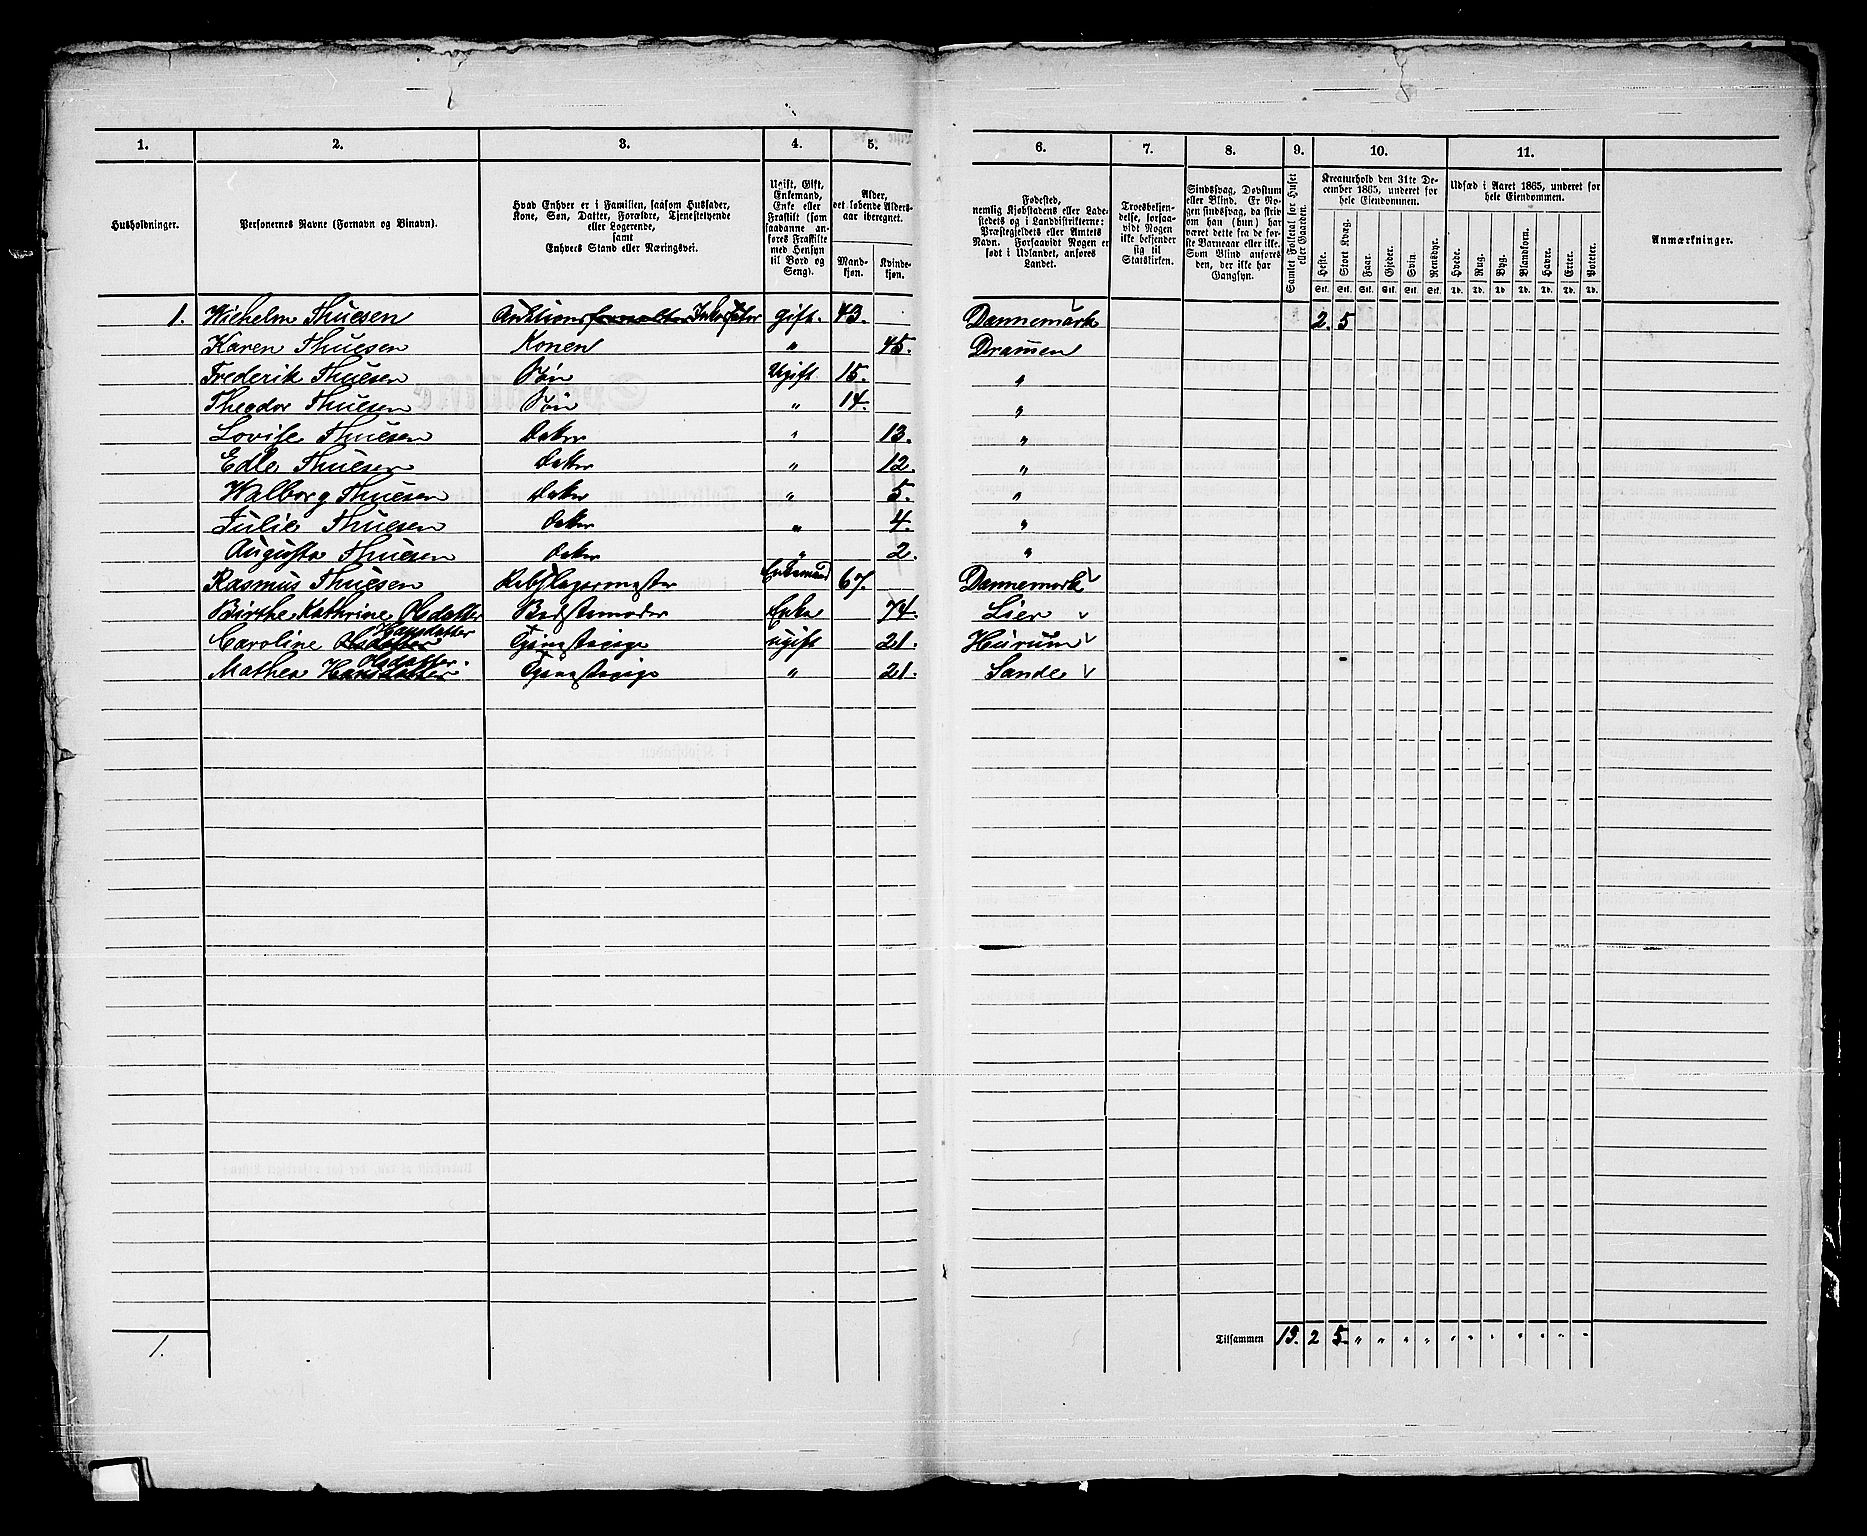 1. 2. 3. 4. 5. 6. 7. 8. 9. 10. 11.
Husholdninger.
Personernes Navne (Fornavn og Binavn).
Hvad Enhver er i Familien, saasom Husfader,
Kone, Søn, Datter, Forældre, Tjenestetyende
eller Logerende,
samt
Enhvers Stand eller Næringsvei.
Ugift, Gift,
Enkemand,
Enke eller
Fraskilt (som
saadanne an-
føres Fraskilte
med Hensyn
til Bord og
Seng).
Alder,
det løbende Alders-
aar iberegnet.
Mand-
kjøn.
Kvinde-
kjøn.
Fødested,
nemlig Kjøbstadens eller Lade-
stedets og i Landdistrikterne:
Præstegjeldets eller Amtets
Navn. Forsaavidt Nogen er
født i Udlandet, anføres
Landet.
Troesbekjen-
delse, forsaa-
vidt Nogen
ikke bekjender
sig til
Statskirken.
Sindssvag, Døvstum
eller Blind. Er No-
gen sindssvag, da skriv
om han (hun) har
været dette fra de før-
ste Barneaar eller ikke.
Som Blind anføres
den, der ikke har
Gangsyn.
Samlet Folketal for Huset
eller Gaarden.
Kreaturhold den 31te De-
cember 1865, underet for
hele Eiendommen.
Heste. Stort Kvæg. Faar. Gjeder. Svin. Rensdyr.
Stk. Stk. Stk. Stk. Stk. Stk.
Udsæd i Aaret 1865, underet for
hele Eiendommen.
Hvede. Rug. Byg. Blandkorn. Havre. Erter. Poteter.
Td. Td. Td. Td. Td. Td. Td.
Anmærkninger.
1. Wichelm Thuesen Auktionsforvalter Inkassator gift. 43. Dannemark 2. 5
Karen Thuesen Konen " 45. Dramen
Frederik Thuesen Søn Ugift 15. "
Theodor Thuesen Søn " 14. "
Lovise Thuesen Datter " 13. "
Edle Thuesen Datter " 12. "
Walborg Thuesen Datter " 5. "
Julie Thuesen Datter " 4. "
Augusta Thuesen Datter " 2. "
Rasmus Thuesen Rebslagermester Enkemand 67. Dannemark
Birthe Kathrine Olsdatter Bedstemoder Enke 74. Lier
Caroline Olsdatter Hansdatter Tjenstepige ugift 21. Hurum
Mathea Hansdatter Olsdatter. Tjenstepige " 21. Sande
1. Tilsammen 13. 2 5. " " " " " " " " " " "